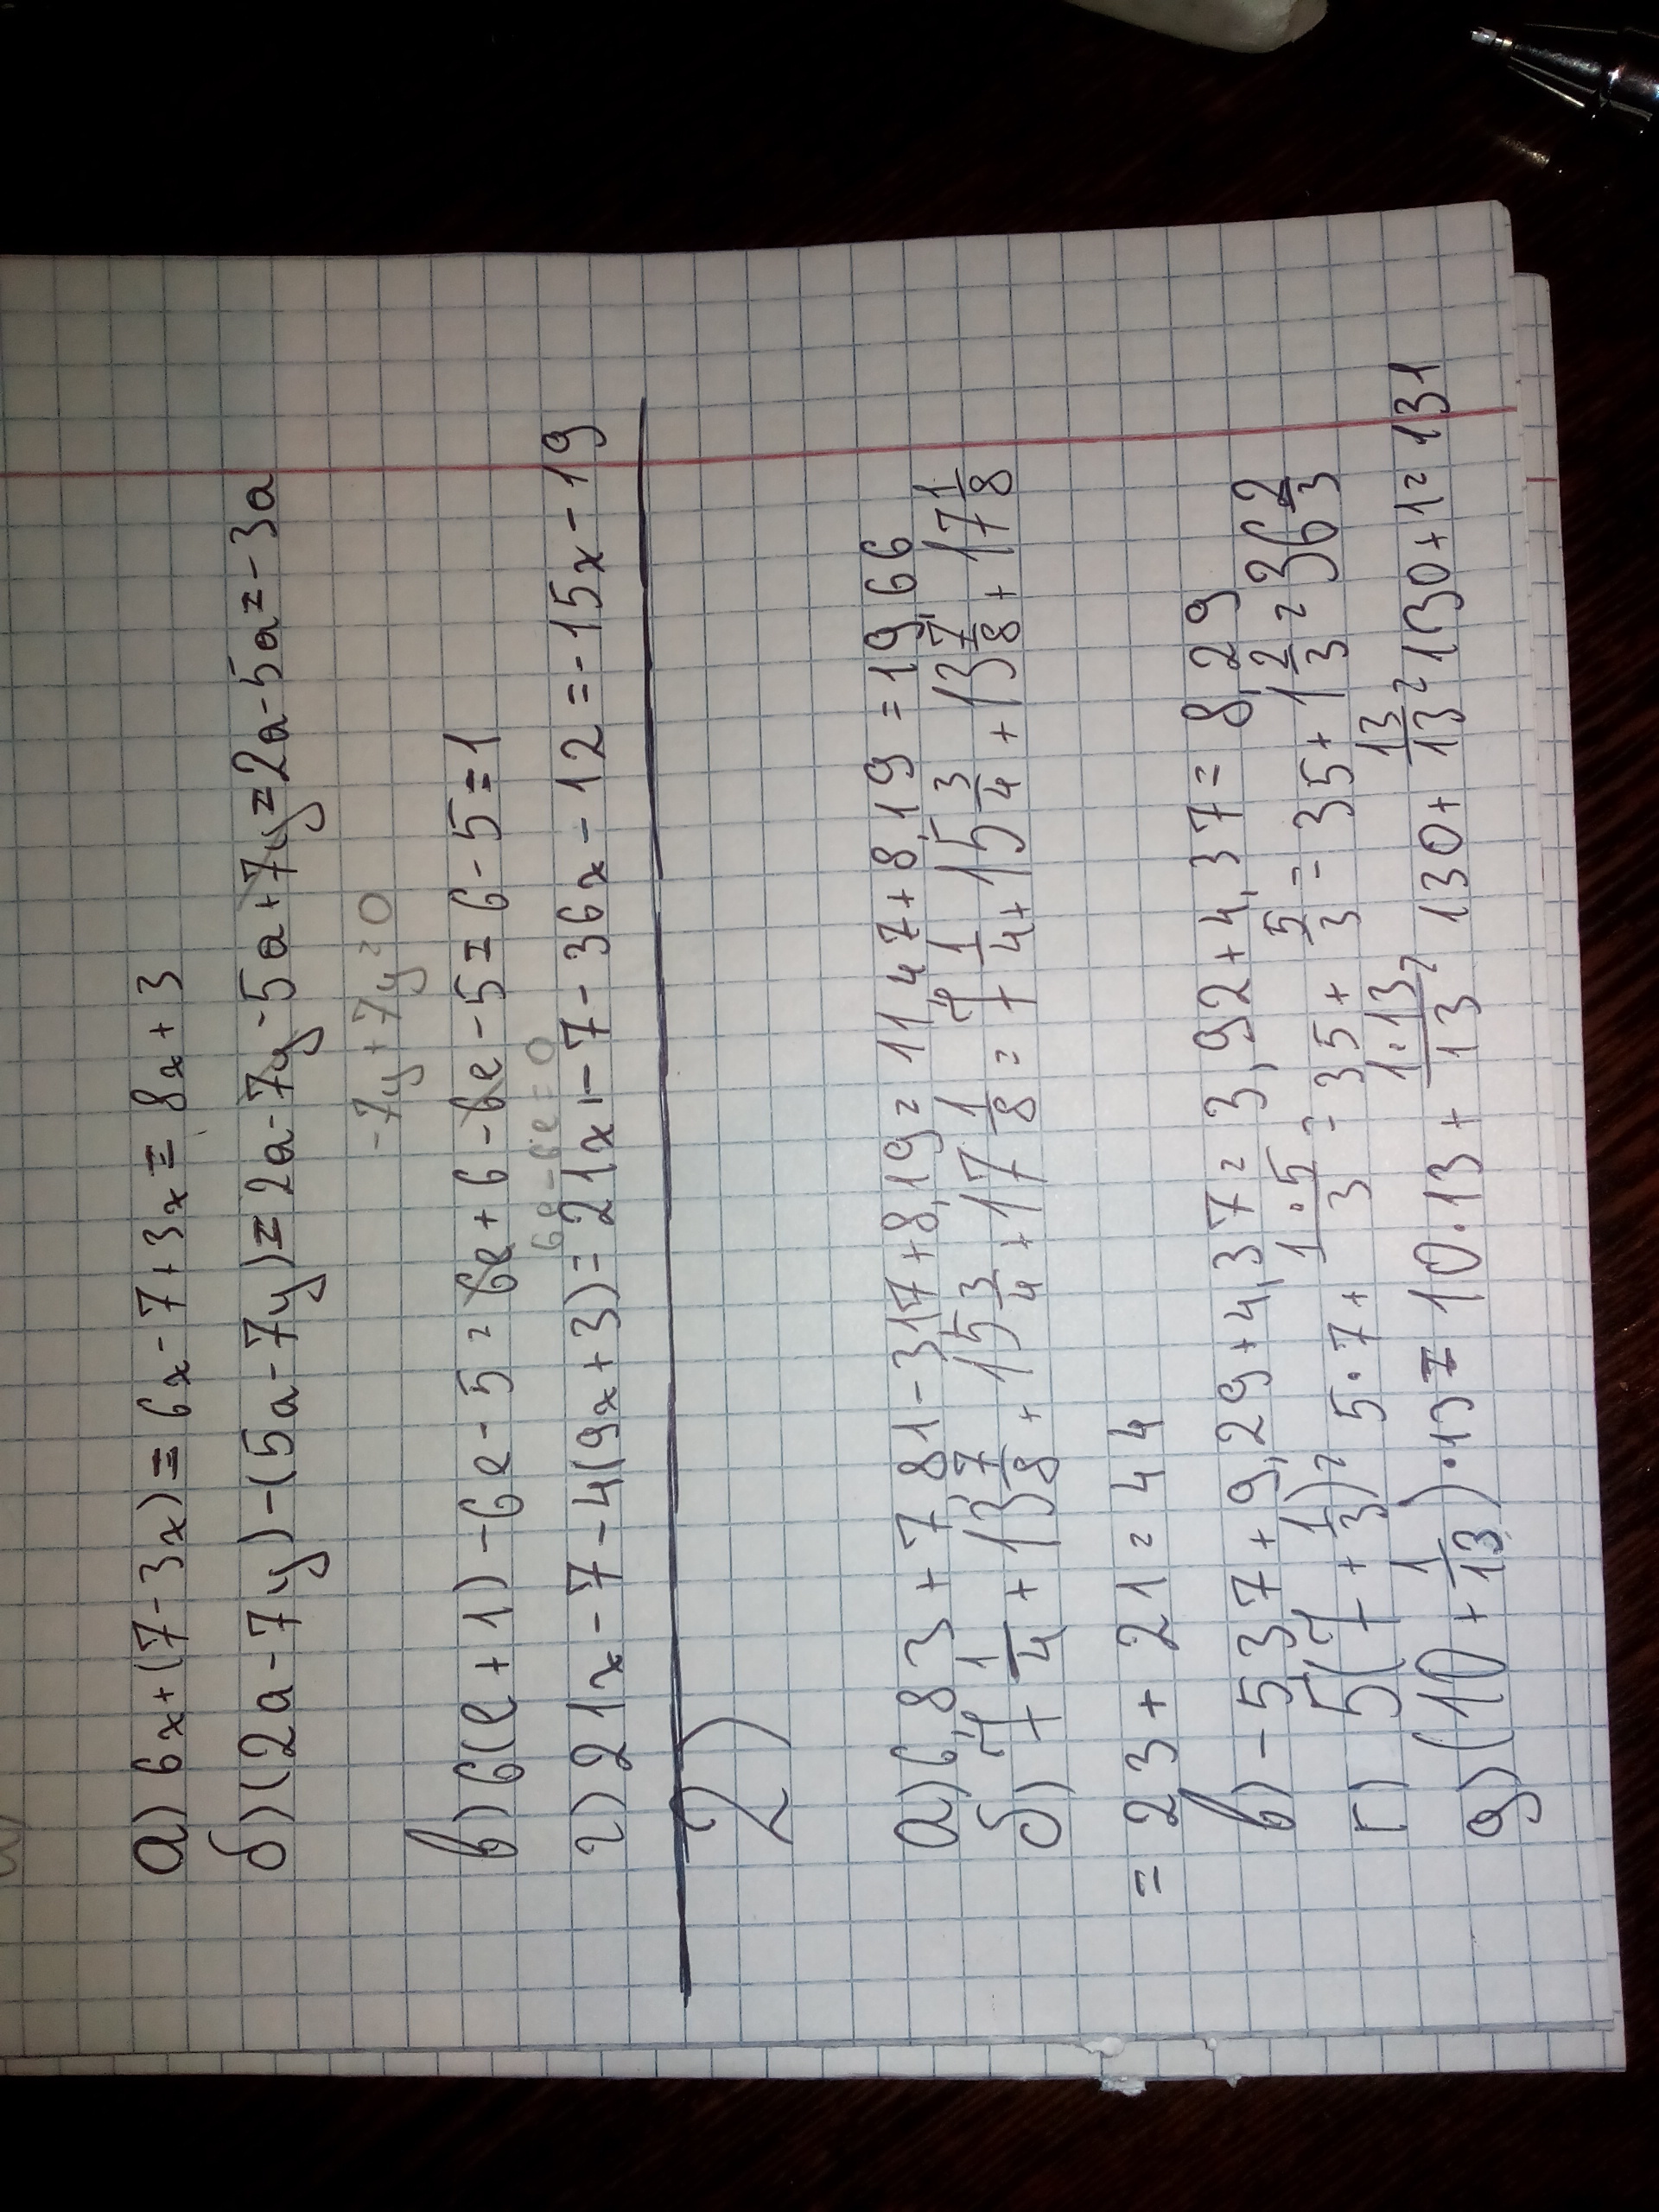 а) 6x+(7-3x)=6x-7+3x=8x+3
б) (2a-7y)-(5a-7y)=2a-7y-5a+7y=2a-5a=-3a
-7y+7y=0
в) 6(в+1)-6в-5=6в+6-6в-5=6-5=1
6в-6в=0
г) 21x-7-4(9x+3)=21x-7-36x-12=-15x-19
2)
а) 6,83+7,81-3,17+8,19=11,47+8,19=19,66
б) 7 1/4+13 7/8+15 3/4+17 1/8=7 1/4+15 3/4+13 7/8+17 1/8
=23+21=44
в) -5,37+9,29+4,37=3,92+4,37=8,29
г) 5(7+1/3)=5·7+1·5/3=35+5/3=35+1 2/3=36 2/3
д) (10+1/13)·13=10·13+1·13/13=130+13/13=130+1=131